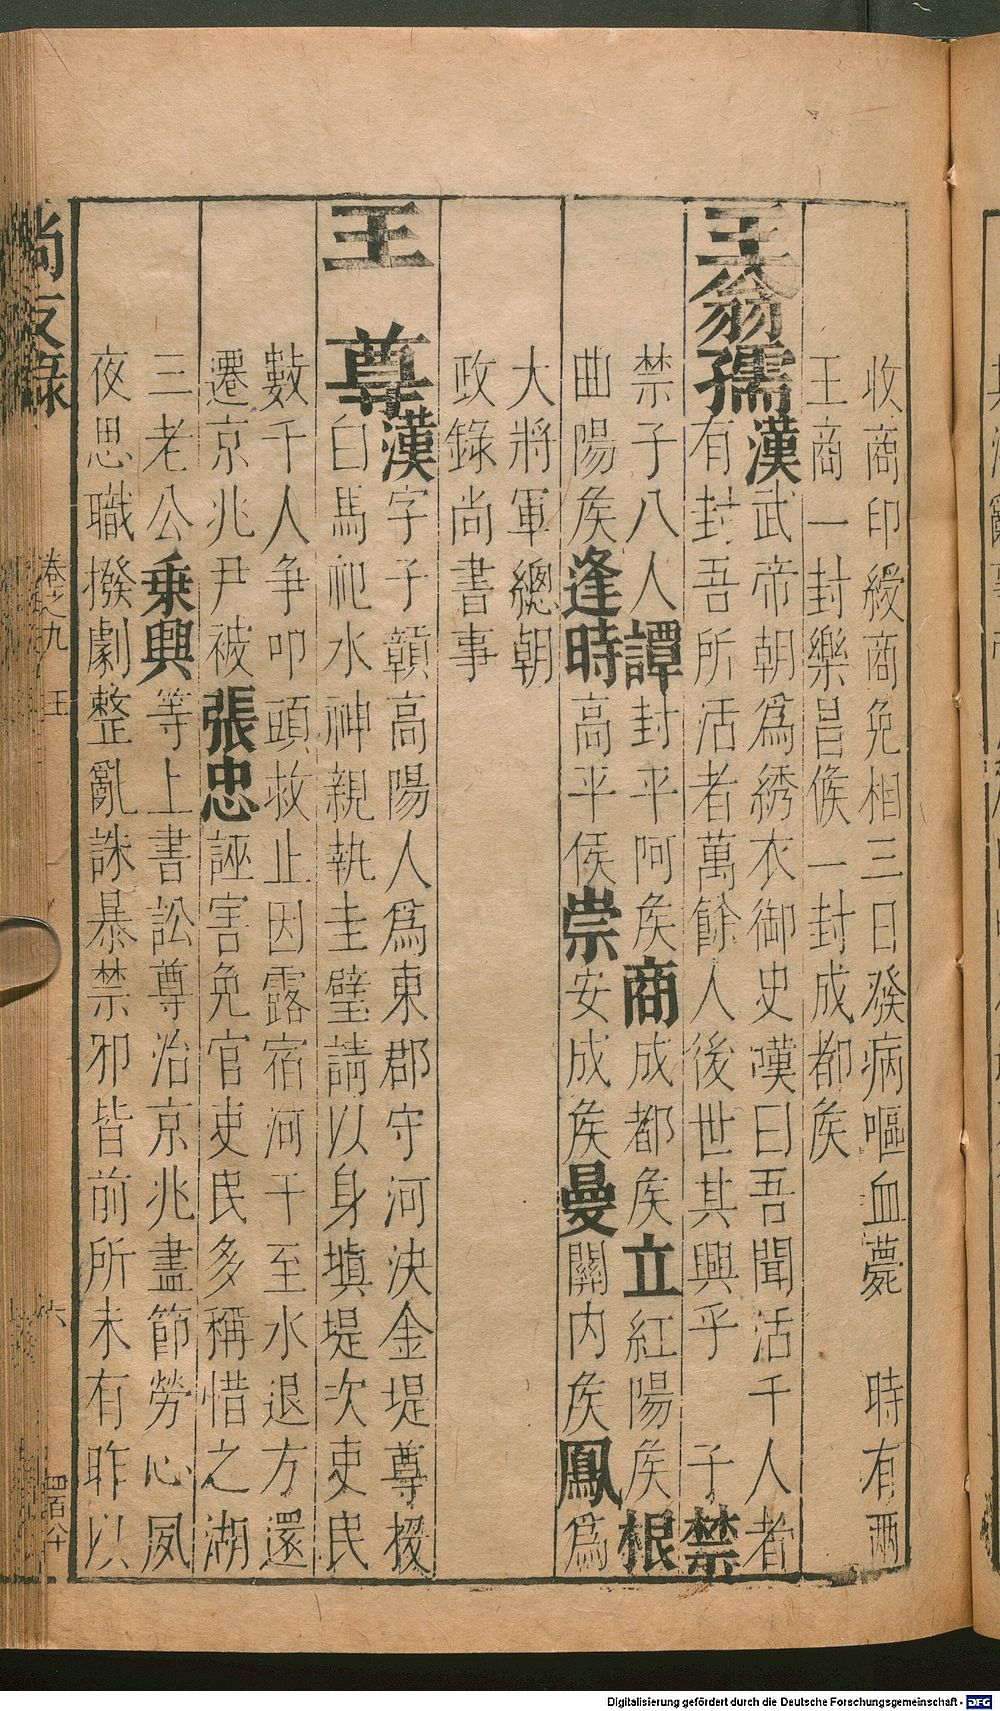 收商印綬商免相三日發病嘔血薨　時有兩
王商一封樂昌候一封成都矦
王翁孺漢武帝朝爲綉衣御史嘆曰吾聞活千人者
有封吾所活者萬餘人後世其興乎　子禁
禁子八人譚封平阿矦商成都矦立紅陽矦根
曲陽矦逢時高平侯崇安成矦曼關内矦鳳爲
大將軍總朝
政錄尚書事
王尊漢字子贛高陽人爲東郡守河決金堤尊投
白馬祀水神親執圭璧請以身塡堤次吏民
數千人争叩頭救止因露宿河干至水退方還
遷京兆尹被張忠誣害免官吏民多稱惜之湖
三老公乗興等上書訟尊治京兆盡節勞心夙
夜思職撥劇整亂誅暴禁邪皆前所未有昨以
尚友錄　卷之九　王　六　四百六十
Digitalisierung gefördert durch die Deutsche Forschungsgemeinschaft - DFG